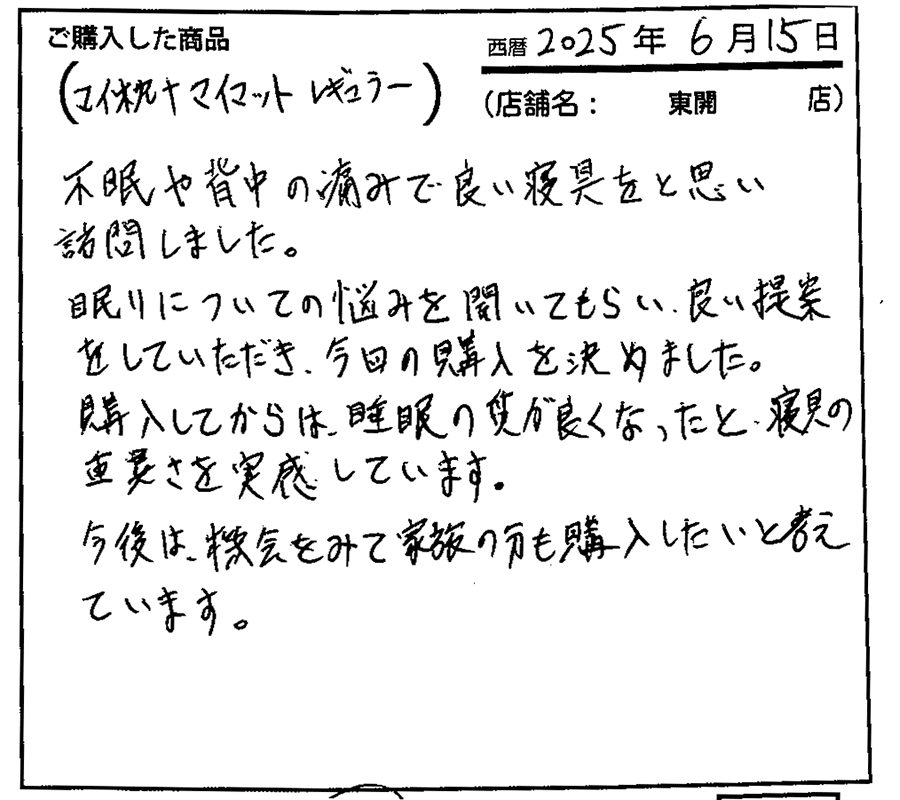 ご購入した商品
西暦 2025年 6月15日
(マイ枕+マイマット レギュラー)
(店舗名: 東開 店)
不眠や背中の痛みで良い寝具をと思い
訪問しました。
眠りについての悩みを聞いてもらい、良い提案
をしていただき、今回の購入を決めました。
購入してからは、睡眠の質が良くなったと、寝具の
重要さを実感しています。
今後は、機会をみて家族の分も購入したいと考え
ています。